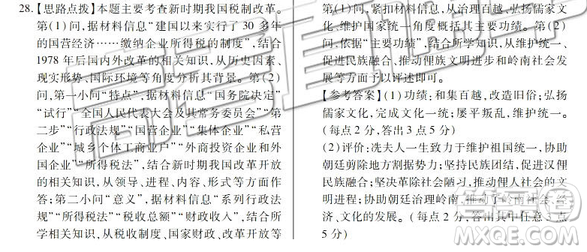 28.【思路点拨】本题主要考查新时期我国税制改革。
第(1)问,据材料信息“建国以来实行了 30 多年
的国营经济……缴纳企业所得税的制度”,结合
1978 年后国内外改革的相关知识,从历史因素、
现实形势、国际环境等角度分析概括。第(2)
问,第一小问“特点”,据材料信息“国务院决定”
“试行”“全国人民代表大会及其常务委员会”“第
二步”“行政法规”“国营企业”“集体企业”“私营
企业”“城乡个体工商户”“外商投资企业和外
国企业”“所得税法”,结合新时期我国改革开放
的相关知识,从领导、进程、内容、形式等方面作
答;第二小问“意义”,据材料信息“系列行政法
规”“所得税法”“税收总额”“财政收入”,结合所
学知识,从税收制度、国家财政、改革开放等
第(1)问,紧扣材料信息,从治理百越、弘扬儒家
文化、维护国家统一角度概括功绩。第(2)
问,围绕“功绩”,结合所学知识,从维护统一、
促进民族融合、推动俚族文明进步和岭南社会
发展等方面予以评述即可。
【参考答案】(1)功绩:和集百越,改革旧俗;弘扬
儒家文化,完成文化一统;屡平叛乱,维护统一。
(每点 2 分,答出 3 点 5 分)
(2)评价:冼夫人一生致力于维护祖国统一,协助
朝廷剪除地方割据势力;坚持民族团结,促进汉俚
民族融合;革除社会陋习,推动俚人社会的文明
进步;协助朝廷治理岭南,推动了岭南社会、经
济、文化的发展。(每点 2 分,答出其中任意三点
5 分)